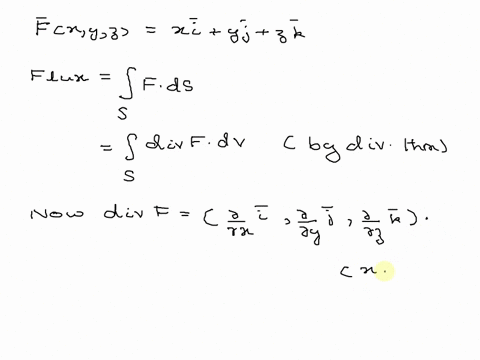 F̄(x,y,z) = xī + yj̄ + zk̄
Flux = ∫_S F·dS
= ∫_S div F·dv (by div. thm)
Now div F = (∂/∂x ī, ∂/∂y j̄, ∂/∂z k̄).
(x